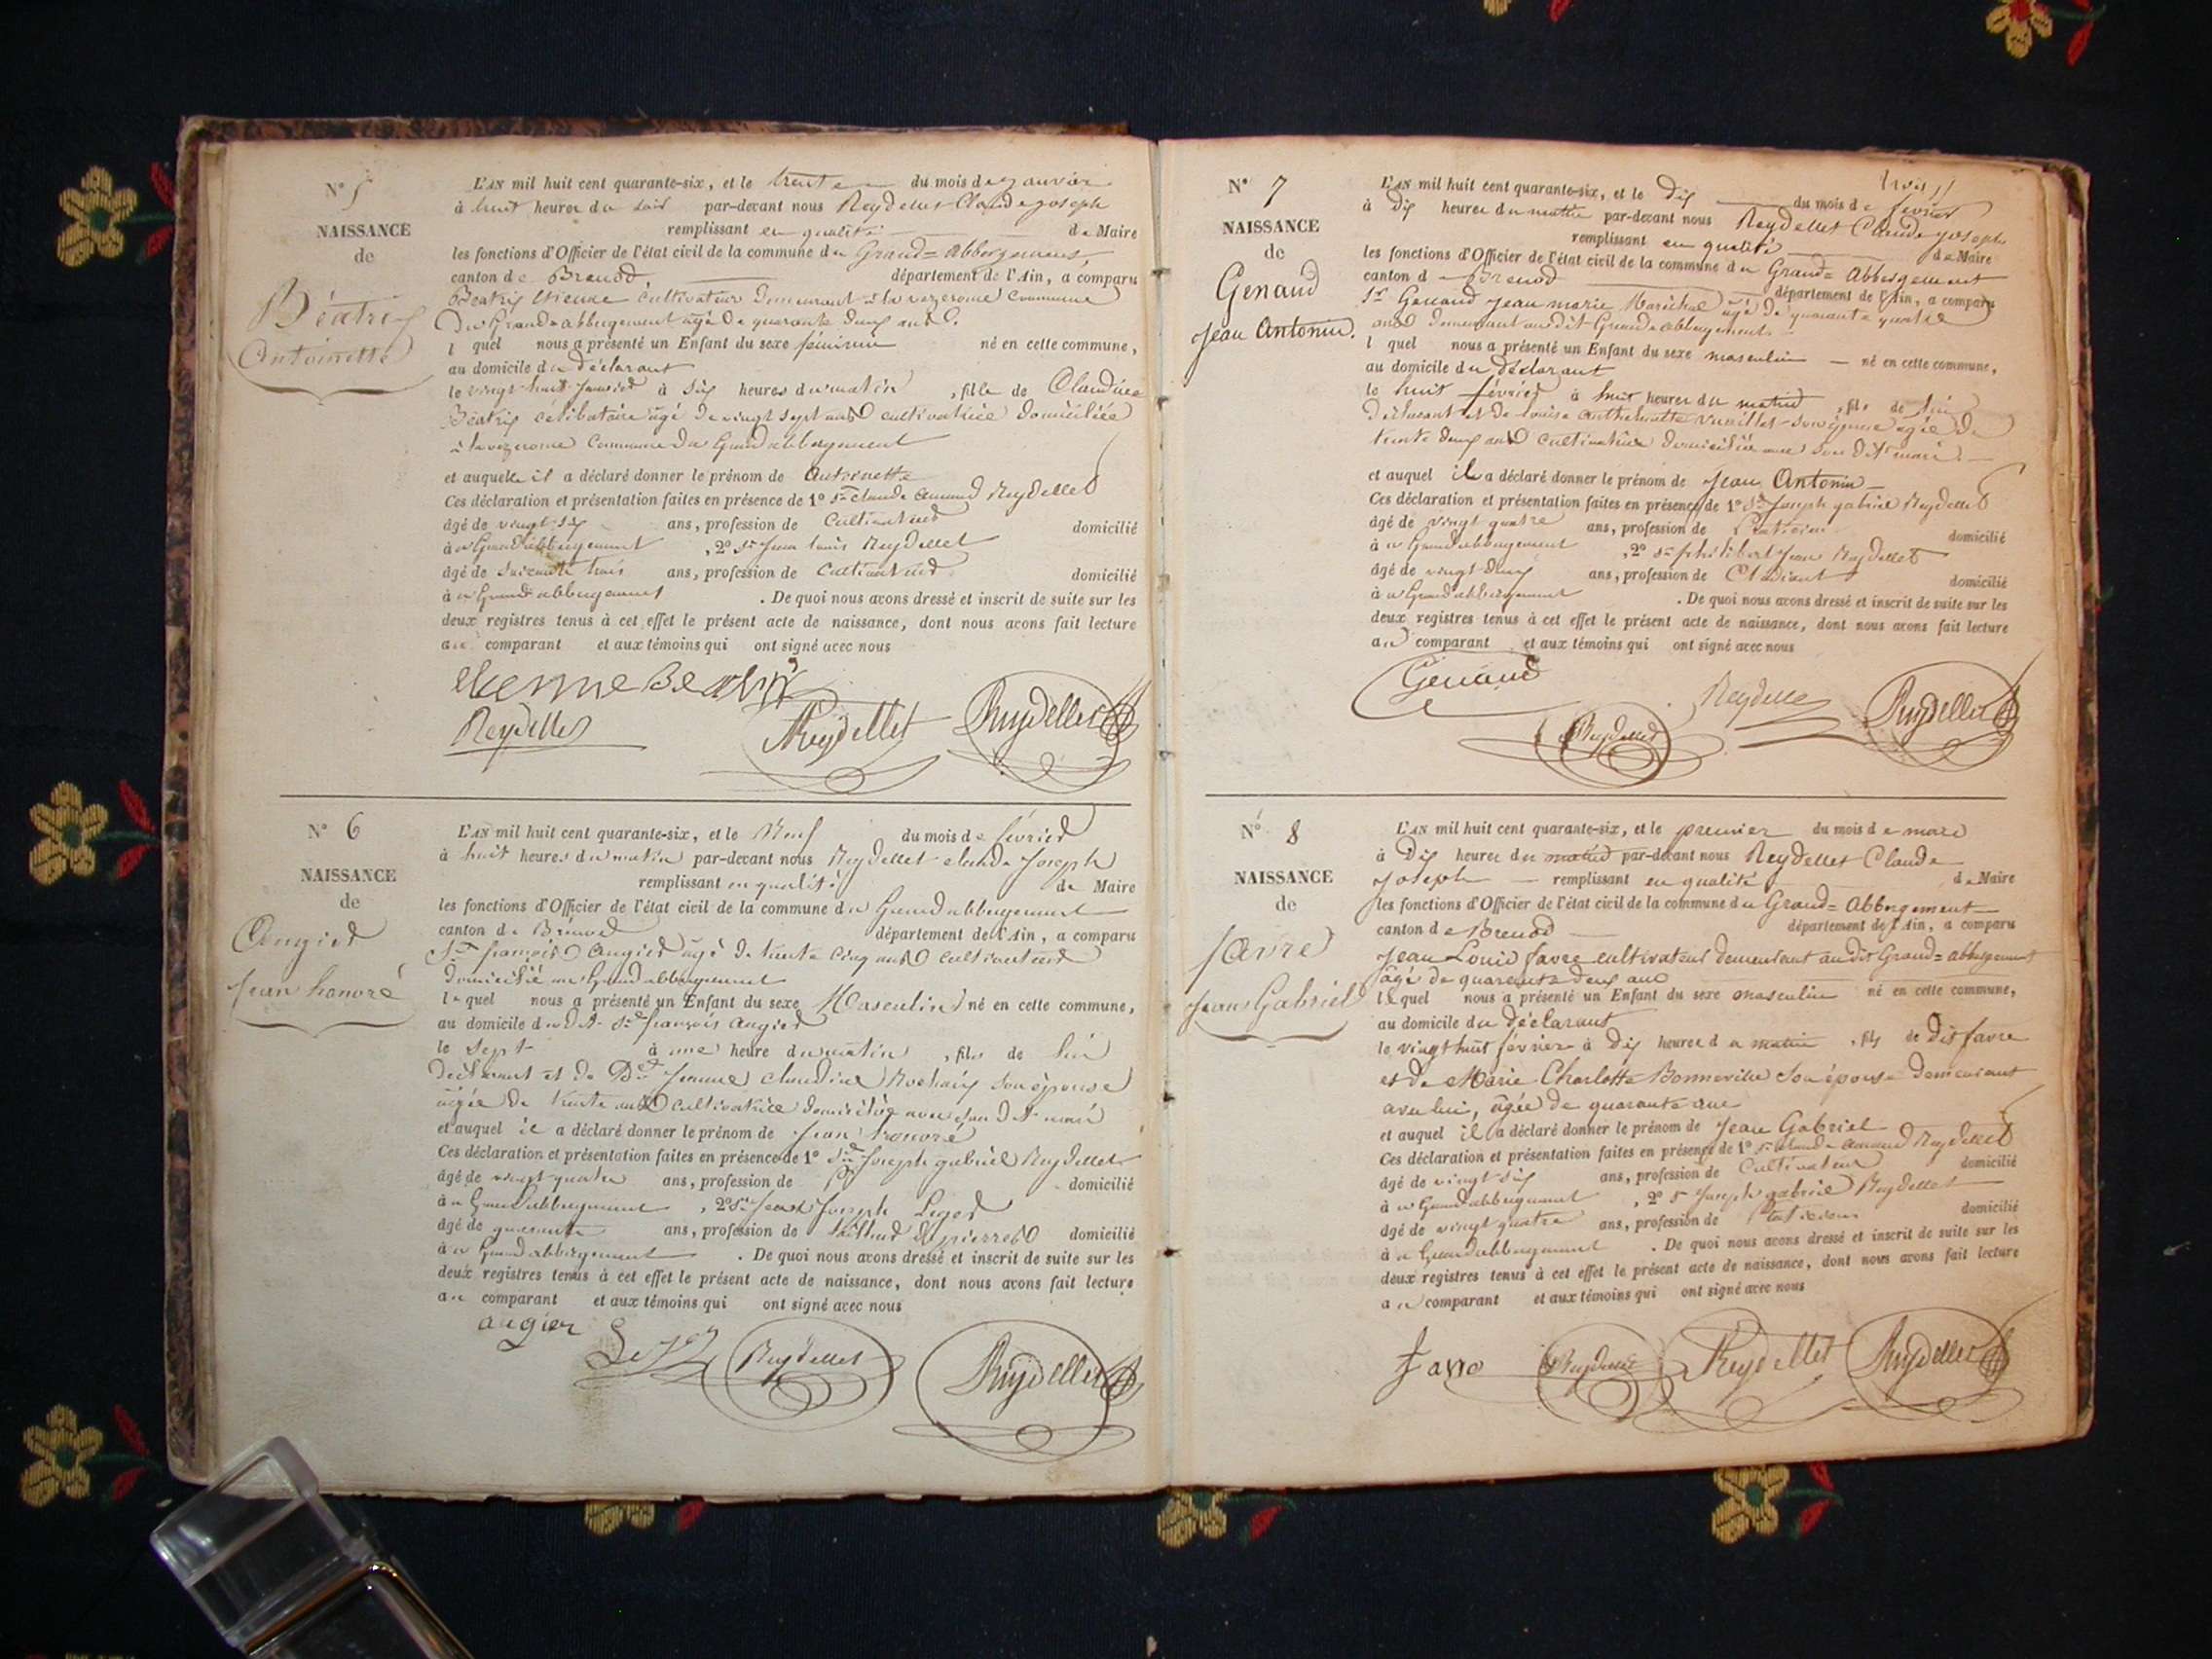 N° 5
NAISSANCE
de
Béatrix
Antoinette
L'AN mil huit cent quarante-six, et le trente du mois de janvier
à huit heures du soir par-devant nous Reydellet Claude joseph
remplissant en qualité de Maire
les fonctions d'Officier de l'état civil de la commune du Grand=Abbergement,
canton de Brenod, département de l'Ain, a comparu
Béatrix Etienne cultivateur demeurant à la vezeronce Commune
du Grand=abbergement âgé de quarante deux ans
lequel nous a présenté un Enfant du sexe féminin né en cette commune,
au domicile du déclarant
le vingt huit janvier à six heures du matin, fille de Claudine
Béatrix célibataire âgé de vingt sept ans cultivatrice domiciliée
commune du Grand abbergement
et auquelle il a déclaré donner le prénom de Antoinette
Ces déclaration et présentation faites en présence de 1° Sr Claude Amand Reydellet
âgé de vingt six ans, profession de cultivateur domicilié
à u Grand abbergement, 2° Sr Jean Louis Reydellet
âgé de soixante trois ans, profession de cultivateur domicilié
à u Grand abbergement. De quoi nous avons dressé et inscrit de suite sur les
deux registres tenus à cet effet le présent acte de naissance, dont nous avons fait lecture
au comparant et aux témoins qui ont signé avec nous
etienne Beatrix
Reydellet Reydellet Reydellet
N° 6
NAISSANCE
de
Augier
Jean honoré
L'AN mil huit cent quarante-six, et le Neuf du mois de février
à huit heures du matin par-devant nous Reydellet claude Joseph
remplissant en qualité de Maire
les fonctions d'Officier de l'état civil de la commune du Grand abbergement
canton de Brénod département de l'Ain, a comparu
Sr françois Augier âgé de trente cinq ans cultivateur
domicilié au Grand abbergement
lequel nous a présenté un Enfant du sexe Masculin né en cette commune,
au domicile du dit Sr françois augier
le sept à une heure du matin, fils de lui
déclarant et de Jeanne claudine son épouse
âgée de trente ans cultivatrice domiciliée avec son dit mari
et auquel il a déclaré donner le prénom de Jean honoré
Ces déclaration et présentation faites en présence de 1° Sr Joseph gabriel Reydellet
âgé de vingt quatre ans, profession de domicilié
à u Grand abbergement, 2° Sr Jean Joseph Leger
âgé de quarante ans, profession de tailleur de pierres domicilié
à u Grand abbergement. De quoi nous avons dressé et inscrit de suite sur les
deux registres tenus à cet effet le présent acte de naissance, dont nous avons fait lecture
au comparant et aux témoins qui ont signé avec nous
augier Reydellet Reydellet
trois
N° 7
NAISSANCE
de
Genaud
Jean Antonin.
L'AN mil huit cent quarante-six, et le Dix du mois de février
à Dix heures du matin par-devant nous Reydellet Claude joseph
remplissant en qualité de Maire
les fonctions d'Officier de l'état civil de la commune du Grand=Abbergement
canton de Brenod département de l'Ain, a comparu
Sr Genaud Jean marie Maréchal âgé de quarante quatre
ans demeurant au dit Grand=abbergement
lequel nous a présenté un Enfant du sexe masculin né en cette commune,
au domicile du déclarant
le huit février à huit heures du matin, fils de lui
déclarant et de Louise anthelmette vuaillet son épouse agée de
trente deux ans cultivatrice domiciliée avec son dit mari.
et auquel il a déclaré donner le prénom de Jean Antonin
Ces déclaration et présentation faites en présence de 1° Sr Joseph gabriel Reydellet
âgé de vingt quatre ans, profession de Praticien domicilié
à u Grand abbergement, 2° Sr philibert Jean Reydellet
âgé de vingt deux ans, profession de Etudiant domicilié
à u Grand abbergement. De quoi nous avons dressé et inscrit de suite sur les
deux registres tenus à cet effet le présent acte de naissance, dont nous avons fait lecture
au comparant et aux témoins qui ont signé avec nous
Genaud Reydellet Reydellet
Reydellet
N° 8
NAISSANCE
de
favre
Jean Gabriel
L'AN mil huit cent quarante-six, et le premier du mois de mars
à Dix heures du matin par-devant nous Reydellet Claude
Joseph remplissant en qualité de Maire
les fonctions d'Officier de l'état civil de la commune du Grand=Abbergement
canton de Brenod département de l'Ain, a comparu
Jean Louis favre cultivateur demeurant au dit Grand=abbergement
âgé de quarante deux ans
lequel nous a présenté un Enfant du sexe masculin né en cette commune,
au domicile du déclarant
le vingt huit février à Dix heures du matin, fils de dit favre
et de Marie Charlotte Bonneville son épouse demeurant
avec lui, âgée de quarante ans
et auquel il a déclaré donner le prénom de Jean Gabriel
Ces déclaration et présentation faites en présence de 1° Sr claude amand Reydellet
âgé de vingt six ans, profession de Cultivateur domicilié
à u Grand abbergement, 2° Sr Joseph gabriel Reydellet
âgé de vingt quatre ans, profession de Praticien domicilié
à u Grand abbergement. De quoi nous avons dressé et inscrit de suite sur les
deux registres tenus à cet effet le présent acte de naissance, dont nous avons fait lecture
au comparant et aux témoins qui ont signé avec nous
favre Reydellet Reydellet Reydellet